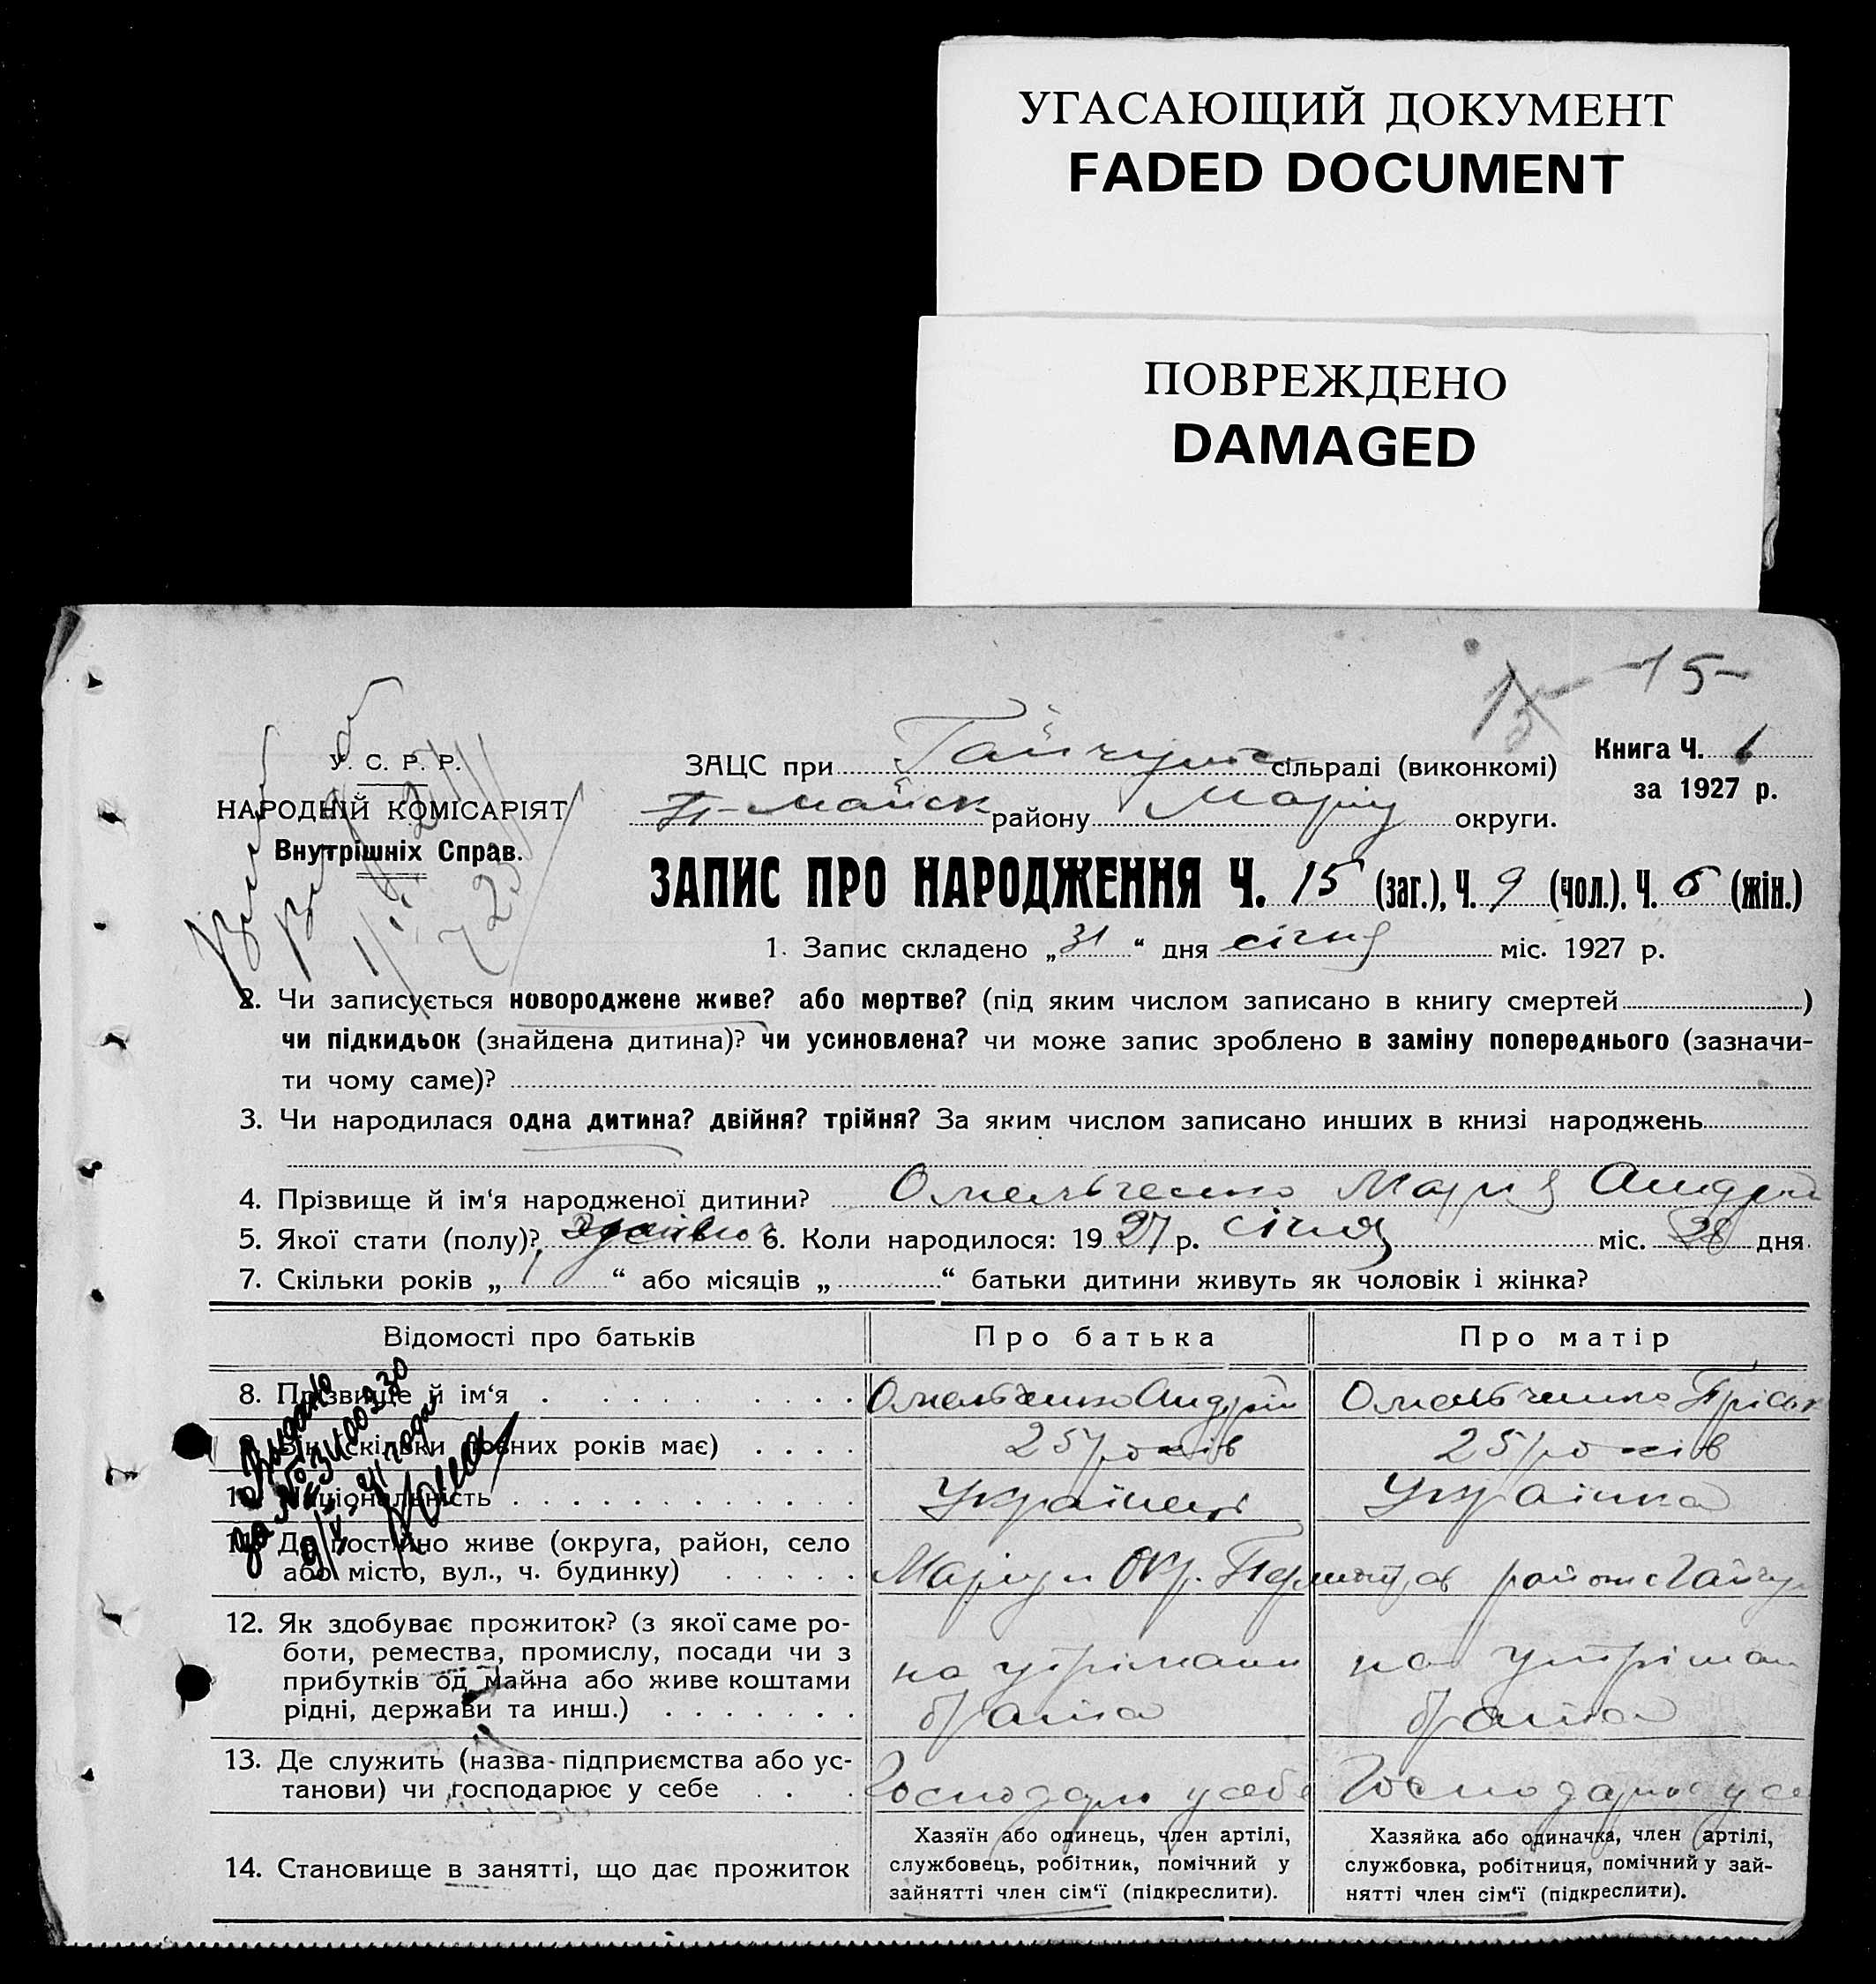 УГАСАЮЩИЙ ДОКУМЕНТ
FADED DOCUMENT
ПОВРЕЖДЕНО
DAMAGED
15 -15-
У. С. Р. Р.
НАРОДНІЙ КОМІСАРІЯТ
Внутрішніх Справ.
ЗАЦС при Гайчульс сільраді (виконкомі)
Книга Ч. 1
за 1927 р.
П-майск району Маріу округи.
ЗАПИС ПРО НАРОДЖЕННЯ Ч. 15 (заг.), Ч. 9 (чол.). Ч. 6 (жін.)
1. Запис складено „31“ дня січня міс. 1927 р.
2. Чи записується новороджене живе? або мертве? (під яким числом записано в книгу смертей )
чи підкидьок (знайдена дитина)? чи усиновлена? чи може запис зроблено в заміну попереднього (зазначи-
ти чому саме)?
3. Чи народилася одна дитина? двійня? трійня? За яким числом записано инших в книзі народжень
4. Прізвище й ім‘я народженої дитини? Омельченко Марія Андрій
5. Якої стати (полу)? 6. Коли народилося: 1927 р. січня міс. 28 дня.
7. Скільки років „1“ або місяців „ “ батьки дитини живуть як чоловік і жінка?
Відомості про батьків Про батька Про матір
8. Прізвище й ім‘я Омельченко Андрій Омельченко Пріськ
Вік (скільки повних років має) 25 років 25 років
10. Національність Українець Українка
11. Де постійно живе (округа, район, село
або місто, вул., ч. будинку) Маріуп Окр. район с Гайчул
12. Як здобуває прожиток? (з якої саме ро-
боти, ремества, промислу, посади чи з
прибутків од майна або живе коштами
рідні, держави та инш.)
на утрімани
брата
на утріман
брата
13. Де служить (назва підприємства або ус-
танови) чи господарює у себе Господарю у себе Господарює у се
14. Становище в занятті, що дає прожиток
Хазяїн або одинець, член артілі,
службовець, робітник, помічний у
зайнятті член сім‘ї (підкреслити).
Хазяйка або одиначка, член артілі,
службовка, робітниця, помічний у зай-
нятті член сім‘ї (підкреслити).